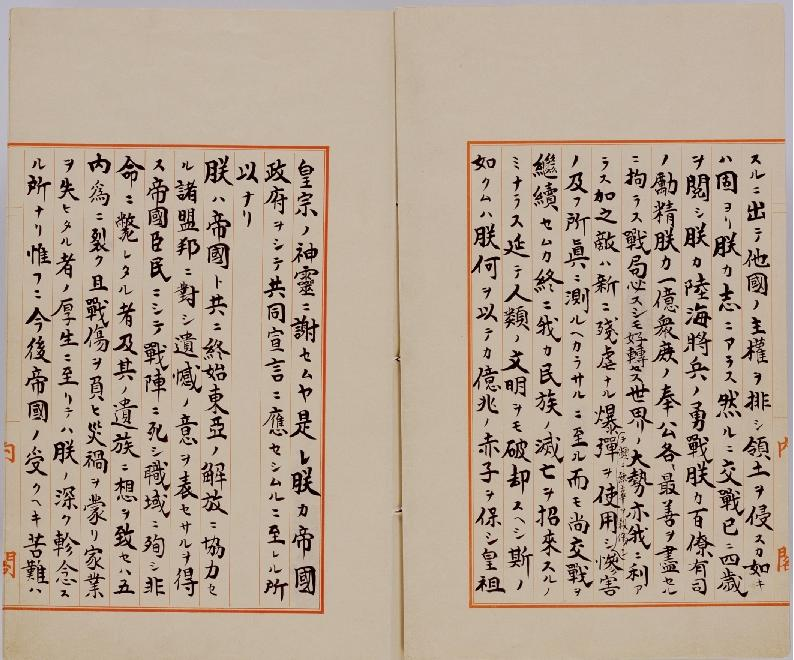 スルニ出テ他國ノ主權ヲ排シ領土ヲ侵スカ如キ
ハ固ヨリ朕カ志ニアラス然ルニ交戰已ニ四歳
ヲ閲シ朕カ陸海將兵ノ勇戰朕カ百僚有司
ノ勵精朕カ一億衆庶ノ奉公各〻最善ヲ盡セル
ニ拘ラス戰局必スシモ好轉セス世界ノ大勢亦我ニ利ア
ラス加之敵ハ新ニ殘虐ナル爆彈ヲ使用シ慘害
テ頻ニ無辜ヲ殺傷シ
ノ及フ所眞ニ測ルヘカラサルニ至ル而モ尚交戰ヲ
繼續セムカ終ニ我カ民族ノ滅亡ヲ招來スルノ
ミナラス延テ人類ノ文明ヲモ破却スヘシ斯ノ
如クムハ朕何ヲ以テカ億兆ノ赤子ヲ保シ皇祖
皇宗ノ神靈ニ謝セムヤ是レ朕カ帝國
政府ヲシテ共同宣言ニ應セシムルニ至レル所
以ナリ
朕ハ帝國ト共ニ終始東亞ノ解放ニ協力セ
ル諸盟邦ニ對シ遺憾ノ意ヲ表セサルヲ得
ス帝國臣民ニシテ戰陣ニ死シ職域ニ殉シ非
命ニ斃レタル者及其ノ遺族ニ想ヲ致セハ五
内爲ニ裂ク且戰傷ヲ負ヒ災禍ヲ蒙リ家業
ヲ失ヒタル者ノ厚生ニ至リテハ朕ノ深ク軫念ス
ル所ナリ惟フニ今後帝國ノ受クヘキ苦難ハ
内閣
内閣